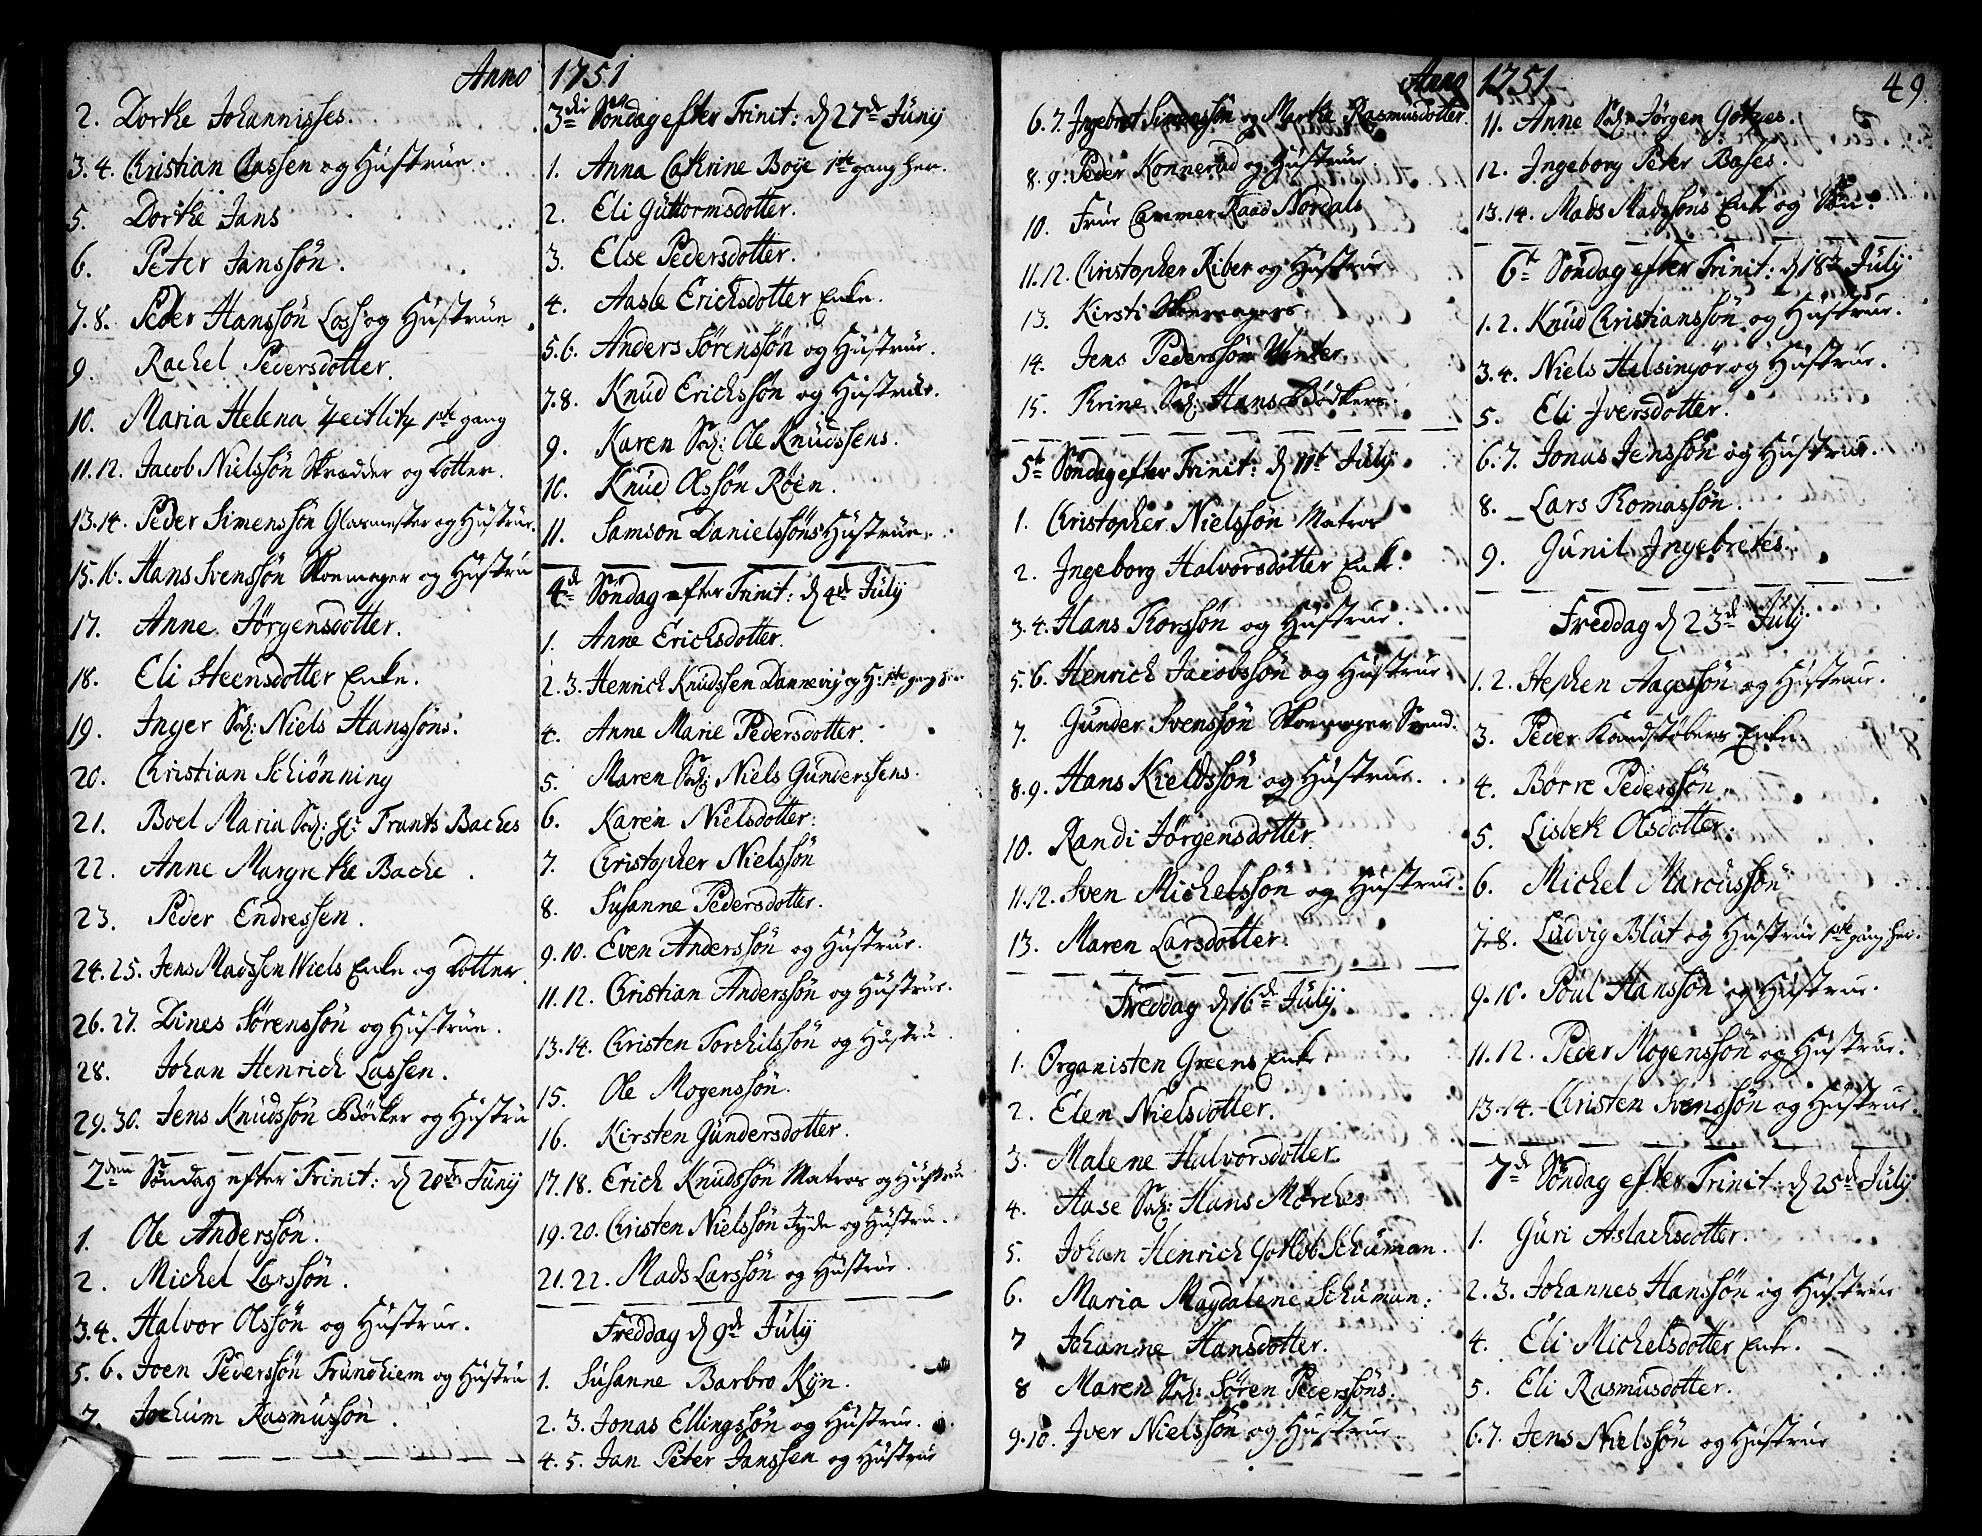 Anno 1751
2. Dorthe Johannisses.
3. 4. Christian Classen og Hüstrüe.
5. Dorthe Jans
6. Peter Janssön.
7. 8. Peder Hanssön Loss og Hüstrüe
9. Rachel Pedersdotter.
10. Maria Helena Zeitlitz 1ste gang
11. 12. Jacob Nielssön Skrædder og Dotter.
13. 14. Peder Simenssön Glarmester og Hüstrüe.
15. 16. Hans Svenssön Skoemager og Hüstrü
17. Anne Jörgensdotter.
18. Eli Steensdotter Enke.
19. Inger Sal: Niels Hanssöns.
20. Christian Schiönning
21. Boel Maria Sal: Hr: Frants Baches
22. Anne Margrethe Bache.
23. Peder Endressen.
24. 25. Jens Madssen Wiels Enke og Dotter.
26. 27. Dines Sörenssön og Hüstrüe.
28. Johan Henrich Lassen.
29. 30. Jens Knüdssön Bödker og Hüstrü
2den Söndag efter Trinit: d 20de Junij
1. Ole Anderssön.
2. Michel Larssön.
3. 4. Halvor Olssön og Hüstrüe.
5. 6. Joen Pederssön Trundhiem og Hüstrü
7. Jochum Rasmussön.
3die Söndag efter Trinit: d 27de Junij
1. Anna Cathrine Boye 1ste gang her.
2. Eli Güttormsdotter.
3. Else Pedersdotter.
4. Aasle Erichsdotter Enke.
5. 6. Anders Sörenssön og Hüstrüe.
7. 8. Knüd Erichssön og Hüstrüe.
9. Karen Sal: Ole Knüdssens.
10. Knüd Olssön Röen.
11. Samson Danielssöns Hüstrüe.
4de Söndag efter Trinit: d 4de Jülij
1. Anne Erichsdotter.
2. 3. Henrich Knüdssen Dannevig og H: 1ste gang her
4. Anne Marie Pedersdotter.
5. Maren Sal: Niels Gunderssens.
6. Karen Nielsdotter.
7. Christopher Nielssön
8. Süsanne Pedersdotter.
9. 10. Even Anderssön og Hüstrüe.
11. 12. Christian Anderssön og Hüstrüe.
13. 14. Christen Torchilssön og Hüstrü
15. Ole Mogenssön.
16. Kirsten Gündersdotter.
17. 18. Erich Knüdssön Matros og Hüstrü
19. 20. Christen Nielssön Jyde og Hüstrü.
21. 22. Mads Larssön og Hüstrüe.
Freddag d 9de Jülij
1. Süsanne Barbro Kyn.
2. 3. Jonas Ellingssön og Hüstrüe.
4. 5. Jan Peter Janssen og Hüstrüe
Anno 1751 49.
6. 7. Ingebret Simenssön og Marthe Rasmusdotter.
8. 9. Peder Konnerud og Hüstrüe.
10. Frue Cammer Raad Nordals
11. 12. Christopher Riber og Hüstrüe
13. Kirsti Skoemagers.
14. Jens Pederssön Winter.
15. Trine Sal: Hans Bödkers.
5te Söndag efter Trinit: d 11te Jülij
1. Christopher Nielssön Matros
2. Ingeborg Halvorsdotter Enke.
3. 4. Hans Thorssön og Hüstrüe.
5. 6. Henrich Jacobssön og Hüstrüe
7. Gunder Svenssön Skoemager Svend.
8. 9. Hans Kieldssön og Hüstrüe.
10. Randi Jörgensdotter.
11. 12. Sven Michelssön og Hüstrüe.
13. Maren Larsdotter.
Freddag d 16de Jülij
1. Organisten Greens Enke.
2. Elen Nielsdotter.
3. Malene Halvorsdotter.
4. Aase Sal: Hans Mörches
5. Johan Henrich Gotlob Schuman.
6. Maria Magdalene Schuman.
7 Johanne Hansdotter.
8 Maren Sal: Sören Pederssöns.
9. 10. Iver Nielssön og Hüstrüe.
11. Anne Sal: Jörgen Götzes.
12. Ingeborg Peter Bases.
13. 14. Mads Madssöns Enke og Sön.
6te Söndag efter Trinit: d 18de Jülij
1. 2. Knüd Christianssön og Hüstrüe.
3. 4. Niels Helsingör og Hüstrüe.
5. Eli Iversdotter.
6. 7. Jonas Jenssön og Hüstrüe.
8. Lars Thomassön.
9. Günil Ingebretes.
Freddag d 23de Jülij
1. 2. Stephen Aagessön og Hüstrüe.
3. Peder Kandstöbers Enke
4. Börre Pederssön.
5. Lisbeth Olsdotter.
6. Michel Marcussön
7. 8. Ludvig Blat og Hüstrüe 1ste gang her.
9. 10. Poul Hanssön og Hüstrüe.
11. 12. Peder Mogenssön og Hüstrüe.
13. 14. Christen Svenssön og Hüstrüe.
7de Söndag efter Trinit: d 25de Jülij
1. Güri Aslachsdotter.
2. 3. Johannes Hanssön og Hüstrüe
4. Eli Michelsdotter Enke.
5. Eli Rasmusdotter.
6. 7. Jens Nielssön og Hüstrüe